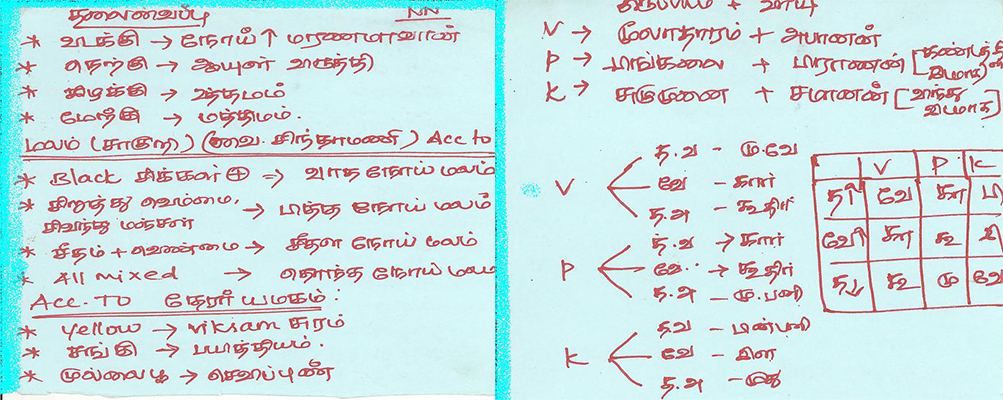 தலைவைப்பு NN
* வடக்கு → நோய்↑ மரணமாவான்
* தெற்கு → ஆயுள் விருத்தி
* கிழக்கு → உத்தமம்
* மேற்கு → மத்திமம்.
மலம் (சாகுறி) (வை. சிந்தாமணி) Acc to
* Black சிக்கள் ⊕ ⇒ வாத நோய் மலம்
* சிறுத்து வெம்மை, சிவந்து மஞ்சள் → பித்த நோய் மலம்
* சீதம் + வெண்மை → சீதள நோய் மலம்
* All mixed → தொந்த நோய் மல
Acc. To தேரர் யமகம் :
* yellow → சுரம்
* சங்கு → பயித்தியம்.
* முல்லைபூ →
V → மூலாதாரம் + அபானன்
P → பிங்கலை + பிராணன்
K → சுழுமுனை + சமானன்
V த.வ - மு.வே
வே - கார்
த.அ - கூதிர்
P த.வ → கார்
வே. → கூதிர்
த.அ - மு.பனி
K த.வ - பின்பனி
வே - இள
த.அ - முது
V P K
த↑ வே கா பி
வே↑ கா கூ இ
த↓ கூ மு வே